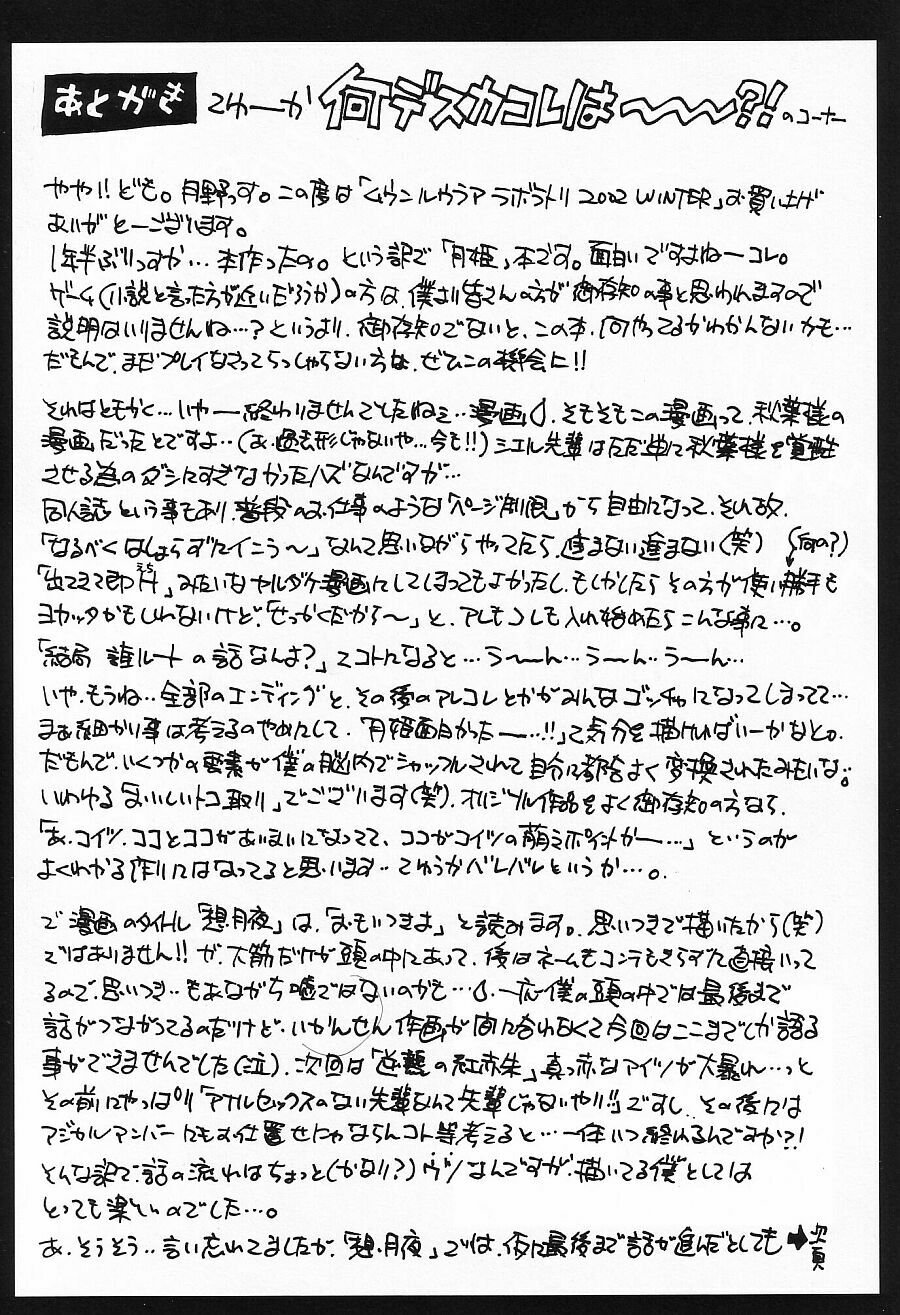 あとがき てゆーか 何デスカコレは～～～?! のコーナー
やや!!ども。月野っす。この度は「ムウンルウラア ラボラトリ 2002 WINTER」お買い上げ
ありがとーございます。
1年半ぶりっすか…本作ったの。という訳で「月姫」本です。面白いですよねーコレ。
ゲーム(小説と言った方が近いだろうか)の方は、僕より皆さんの方が御存知の事と思われますので
説明はいりませんね…?というより、御存知でないと、この本、何やってるかわかんないかも…
だもんで、まだプレイなさってらっしゃらない方は、ぜひこの機会に!!
それはともかく…いやー終わりませんでしたねェ…漫画。そもそもこの漫画って、秋葉様の
漫画だったとですよ…(あ、過去形じゃないや…今も!!)シエル先輩はただ単に秋葉様を覚醒
させる為のダシにすぎなかったハズなんですが…
同人誌という事もあり、普段のお仕事のような「ページ制限」から自由になって、それ故、
「なるべくはしょらずにイこう～」なんて思いながらやってたら、進まない進まない(笑) (何の?)
「出てきて即H」みたいなヤルダケ漫画にしてしまってもよかったし、もしかしたらその方が使い勝手も
ヨカッタかもしれないけど、「せっかくだから～」と、アレもコレも入れ始めたらこんな事に…。
「結局 誰ルートの話なんよ?」てコトになると…う～ん…う～ん…う～ん…
いや、もうね…全部のエンディングと、その後のアレコレとかがみんなゴッチャになってしまってて…
まあ細かい事は考えるのやめにして、「月姫面白かったー…!!」て気分を描ければいーかなと。
だもんで、いくつかの要素が僕の脳内でシャッフルされて自分に都合よく変換されたみたいな。
いわゆる「おいしいトコ取り」でございます(笑)。オリジナル作品をよく御存知の方なら、
「あ、コイツ、ココとココがあいまいになってて、ココがコイツの萌えポイントかー…」というのが
よくわかる作りにはなってると思います…てゆうかバレバレというか…。
で 漫画のタイトル「想月夜」は、「おもいつきよ」と読みます。思いつきで描いたから(笑)
ではありません!! が、大筋だけが頭の中にあって、後はネームもコンテもきらずた直接いって
るので、思いつき…もあながち嘘ではないのかも…。一応僕の頭の中では最後まで
話がつながってるのだけど、いかんせん作画が間に合わなくて今回はここまでしか語る
事ができませんでした(泣)。次回は「逆襲の紅赤朱」真っ赤なアイツが大暴れ…っと
その前にやっぱり「アナルセックスのない先輩なんて先輩じゃないやい!!」ですし、その後には
アジカルアンバーにもお仕置せにゃならんコト等考えると…一体いつ終われるんですか?!
そんな訳で、話の流れはちょっと(かなり?)ウツなんですが、描いてる僕としては
とっても楽しいのでした…。
あ、そうそう…言い忘れてましたが、「想月夜」では、仮に最後まで話が進んだとしても➡次頁